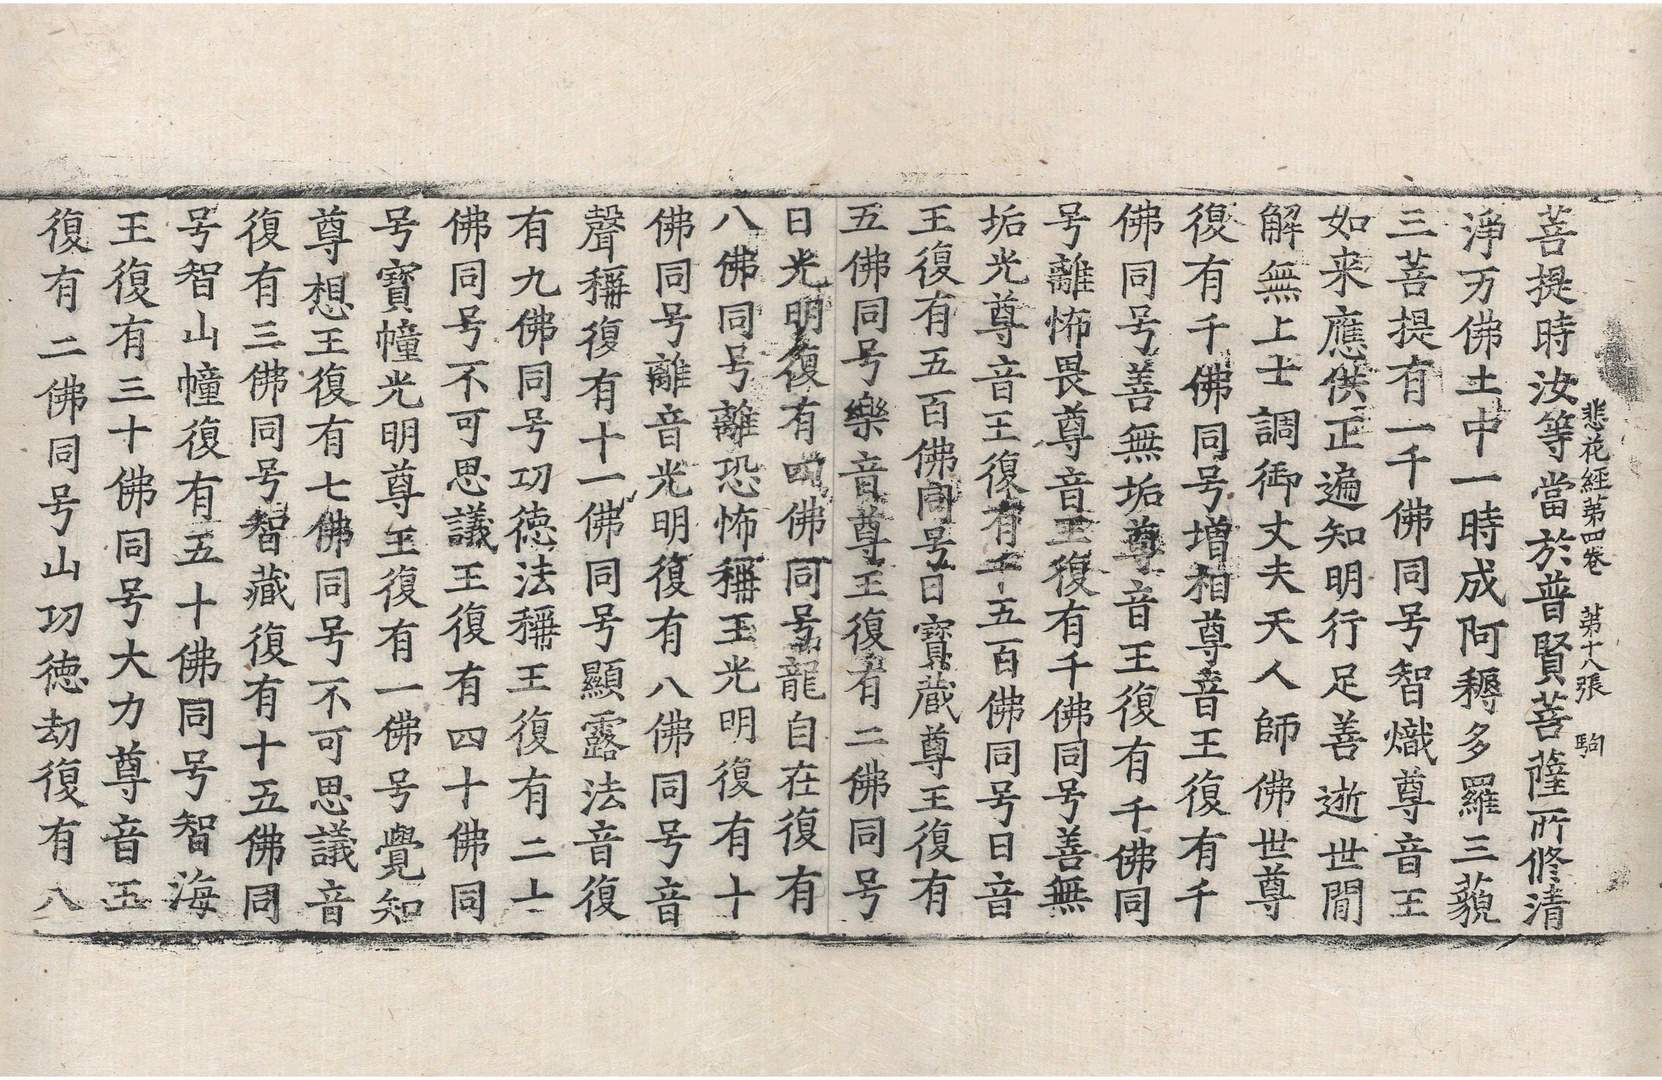 悲花經第四卷 第十八張 駒
菩提時汝等當於普賢菩薩所修清
淨万佛土中一時成阿耨多羅三藐
三菩提有一千佛同号智熾尊音王
如来應供正遍知明行足善逝世間
解無上士調御丈夫天人師佛世尊
復有千佛同号增相尊音王復有千
佛同号善無垢尊音王復有千佛同
号離怖畏尊音王復有千佛同号善無
垢光尊音王復有千五百佛同号日音
王復有五百佛同号日寶藏尊王復有
五佛同号樂音尊王復有二佛同号
日光明復有四佛同号龍自在復有
八佛同号離恐怖稱王光明復有十
佛同号離音光明復有八佛同号音
聲稱復有十一佛同号顯露法音復
有九佛同号功徳法稱王復有二十
佛同号不可思議王復有四十佛同
号寶幢光明尊王復有一佛号覺知
尊想王復有七佛同号不可思議音
復有三佛同号智藏復有十五佛同
号智山幢復有五十佛同号智海
王復有三十佛同号大力尊音王
復有二佛同号山功徳劫復有八